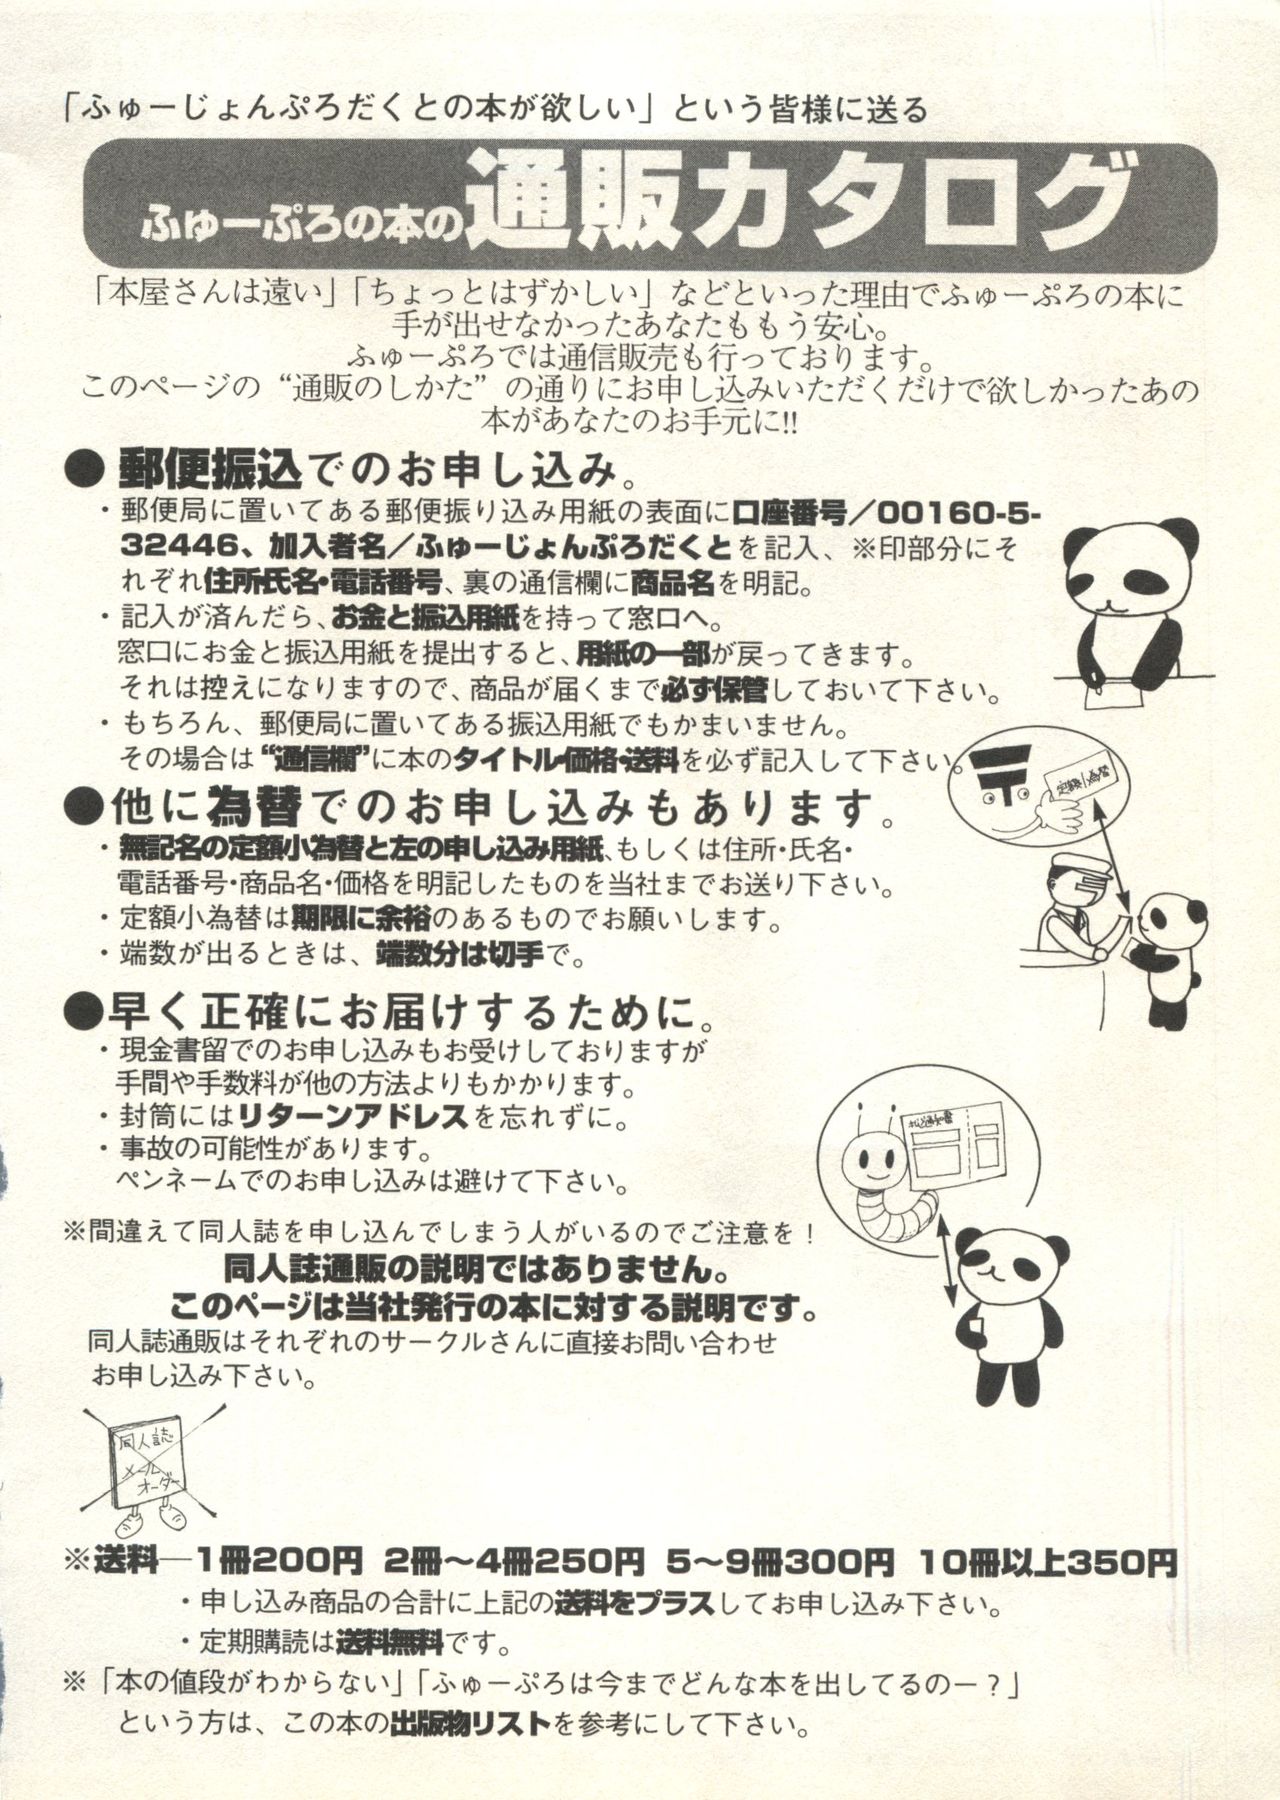 「ふゅーじょんぷろだくとの本が欲しい」という皆様に送る
ふゅーぷろの本の通販カタログ
「本屋さんは遠い」「ちょっとはずかしい」などといった理由でふゅーぷろの本に
手が出せなかったあなたももう安心。
ふゅーぷろでは通信販売も行っております。
このページの“通販のしかた”の通りにお申し込みいただくだけで欲しかったあの
本があなたのお手元に!!
●郵便振込でのお申し込み。
・郵便局に置いてある郵便振り込み用紙の表面に口座番号／00160-5-
32446、加入者名／ふゅーじょんぷろだくとを記入、※印部分にそ
れぞれ住所・氏名・電話番号、裏の通信欄に商品名を明記。
・記入が済んだら、お金と振込用紙を持って窓口へ。
窓口にお金と振込用紙を提出すると、用紙の一部が戻ってきます。
それは控えになりますので、商品が届くまで必ず保管しておいて下さい。
・もちろん、郵便局に置いてある振込用紙でもかまいません。
その場合は“通信欄”に本のタイトル・価格・送料を必ず記入して下さい。
定額小為替
●他に為替でのお申し込みもあります。
・無記名の定額小為替と左の申し込み用紙、もしくは住所・氏名・
電話番号・商品名・価格を明記したものを当社までお送り下さい。
・定額小為替は期限に余裕のあるものでお願いします。
・端数が出るときは、端数分は切手で。
●早く正確にお届けするために。
・現金書留でのお申し込みもお受けしておりますが
手間や手数料が他の方法よりもかかります。
・封筒にはリターンアドレスを忘れずに。
・事故の可能性があります。
ペンネームでのお申し込みは避けて下さい。
払込通知書
※間違えて同人誌を申し込んでしまう人がいるのでご注意を！
同人誌通販の説明ではありません。
このページは当社発行の本に対する説明です。
同人誌通販はそれぞれのサークルさんに直接お問い合わせ
お申し込み下さい。
同人誌
メール
オーダー
※送料―1冊200円 2冊～4冊250円 5～9冊300円 10冊以上350円
・申し込み商品の合計に上記の送料をプラスしてお申し込み下さい。
・定期購読は送料無料です。
※「本の値段がわからない」「ふゅーぷろは今までどんな本を出してるのー？」
という方は、この本の出版物リストを参考にして下さい。